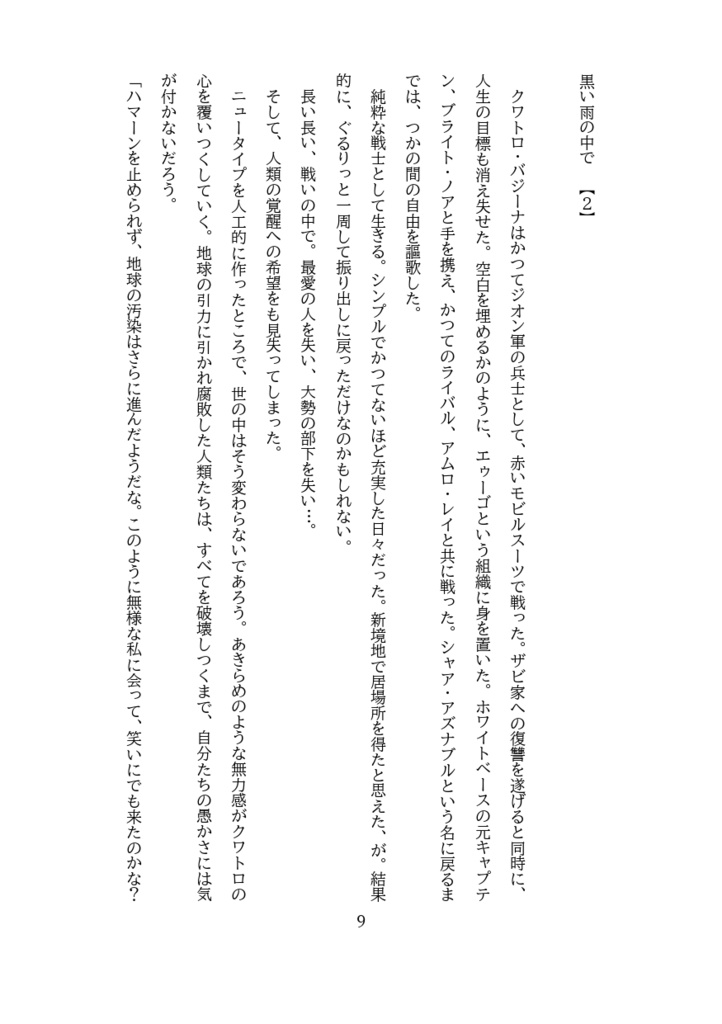 黒い雨の中で　【２】
クワトロ・バジーナはかつてジオン軍の兵士として、赤いモビルスーツで戦った。ザビ家への復讐を遂げると同時に、
人生の目標も消え失せた。空白を埋めるかのように、エゥーゴという組織に身を置いた。ホワイトベースの元キャプテ
ン、ブライト・ノアと手を携え、かつてのライバル、アムロ・レイと共に戦った。シャア・アズナブルという名に戻るま
では、つかの間の自由を謳歌した。
純粋な戦士として生きる。シンプルでかつてないほど充実した日々だった。新境地で居場所を得たと思えた、が。結果
的に、ぐるりっと一周して振り出しに戻っただけなのかもしれない。
長い長い、戦いの中で。最愛の人を失い、大勢の部下を失い…。
そして、人類の覚醒への希望をも見失ってしまった。
ニュータイプを人工的に作ったところで、世の中はそう変わらないであろう。あきらめのような無力感がクワトロの
心を覆いつくしていく。地球の引力に引かれ腐敗した人類たちは、すべてを破壊しつくまで、自分たちの愚かさには気
が付かないだろう。
「ハマーンを止められず、地球の汚染はさらに進んだようだな。このように無様な私に会って、笑いにでも来たのかな？
9